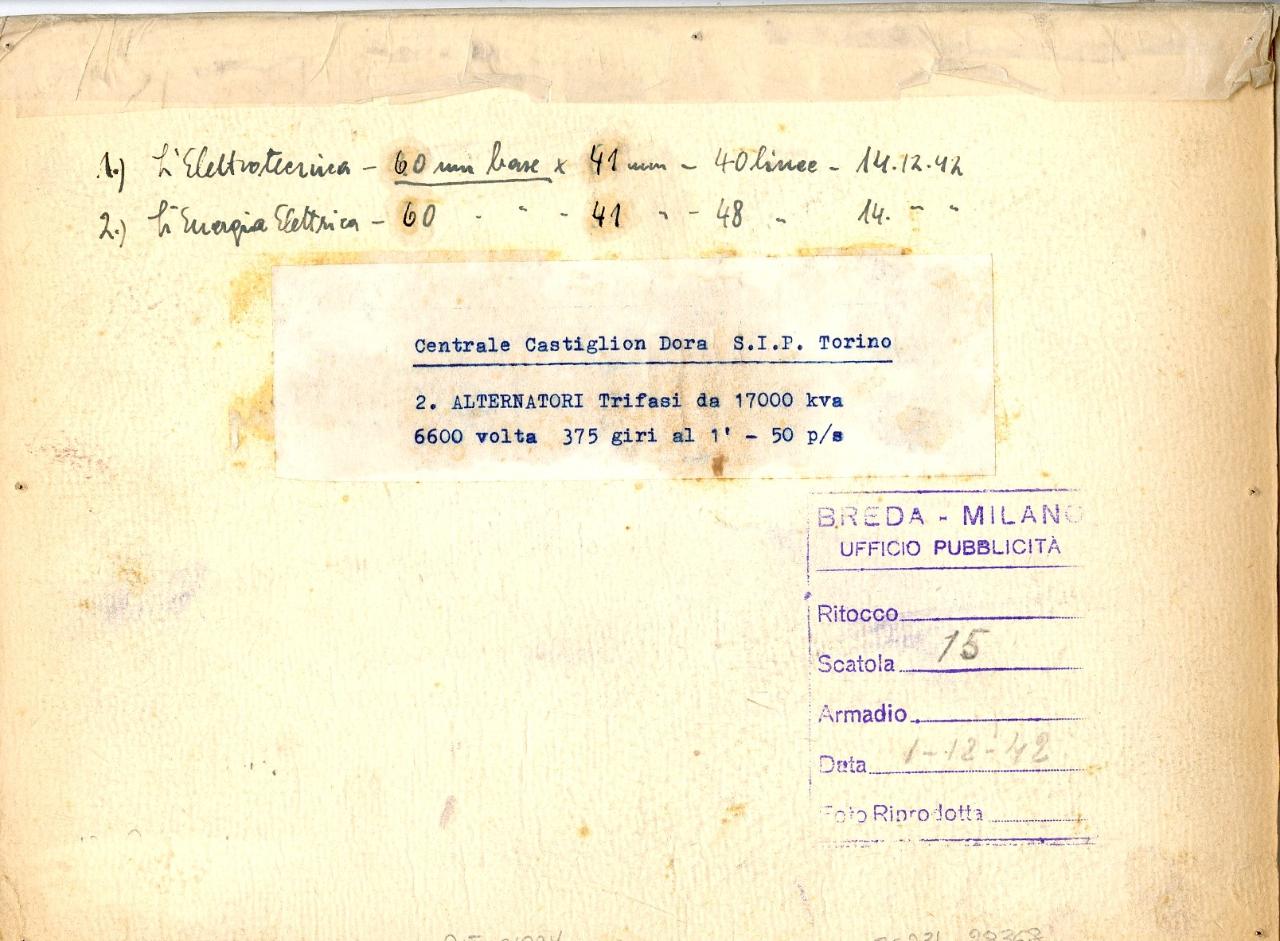 1.) L'Elettrotecnica - 60 mm base x 41 mm - 40 linee - 14.12.42
2.) L'Energia Elettrica - 60 " " - 41 " - 48 " 14. " "
Centrale Castiglion Dora S.I.P. Torino
2. ALTERNATORI Trifasi da 17000 kva
6600 volta 375 giri al 1' - 50 p/s
BREDA - MILANO
UFFICIO PUBBLICITÀ
Ritocco
Scatola 15
Armadio
Data 1-12-42
Foto Riprodotta